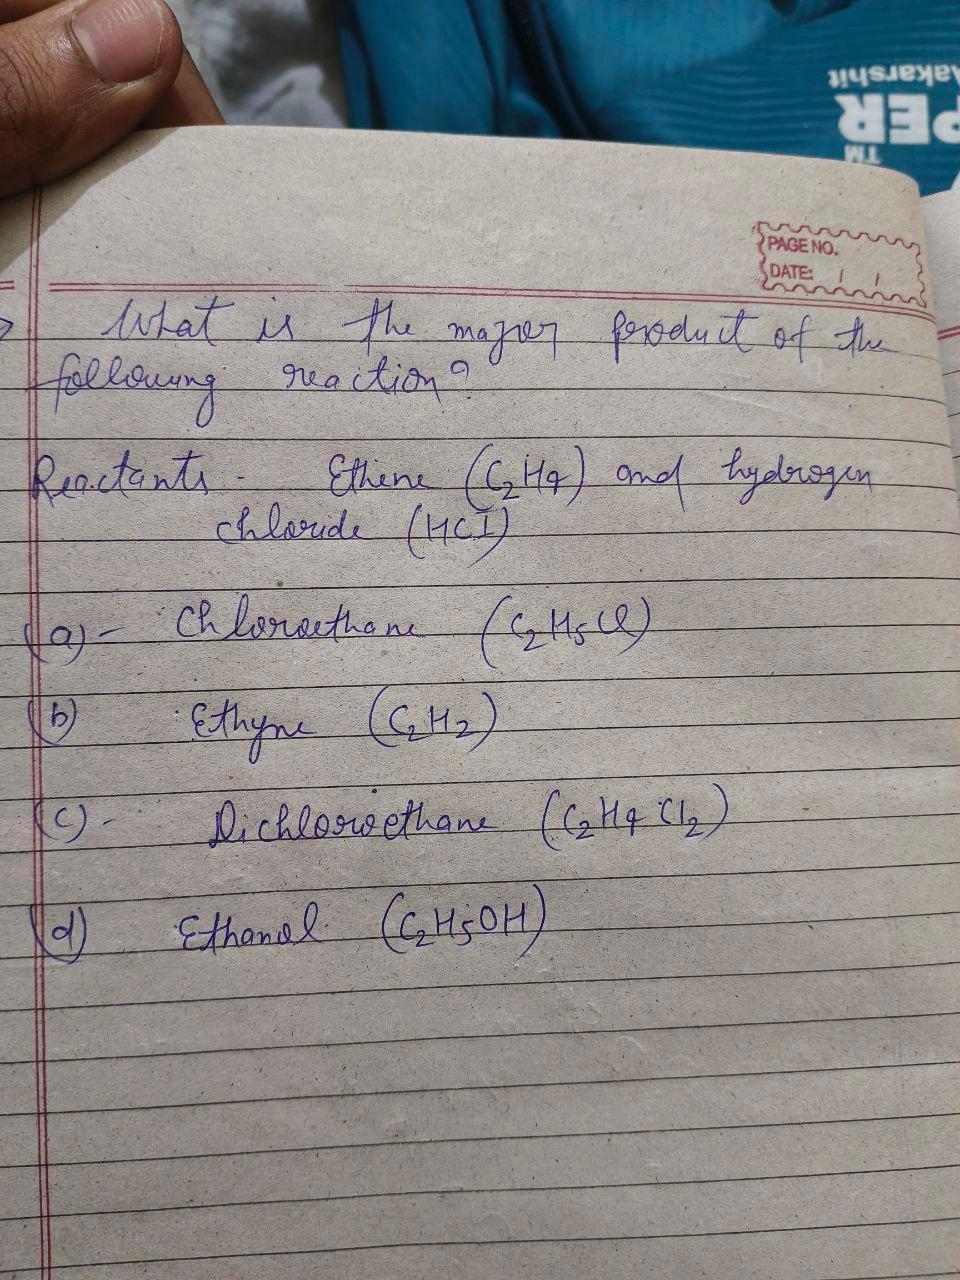 Aakarshit
PER
TM
PAGE NO.
DATE: / /
What is the major product of the
following reaction?
Reactants - Ethene (C₂H4) and hydrogen
chloride (HCI)
(a)- Chloroethane (C₂H5Cl)
(b) Ethyne (C₂H₂)
(c)- Dichloroethane (C₂H4Cl₂)
(d) Ethanol (C₂H5OH)